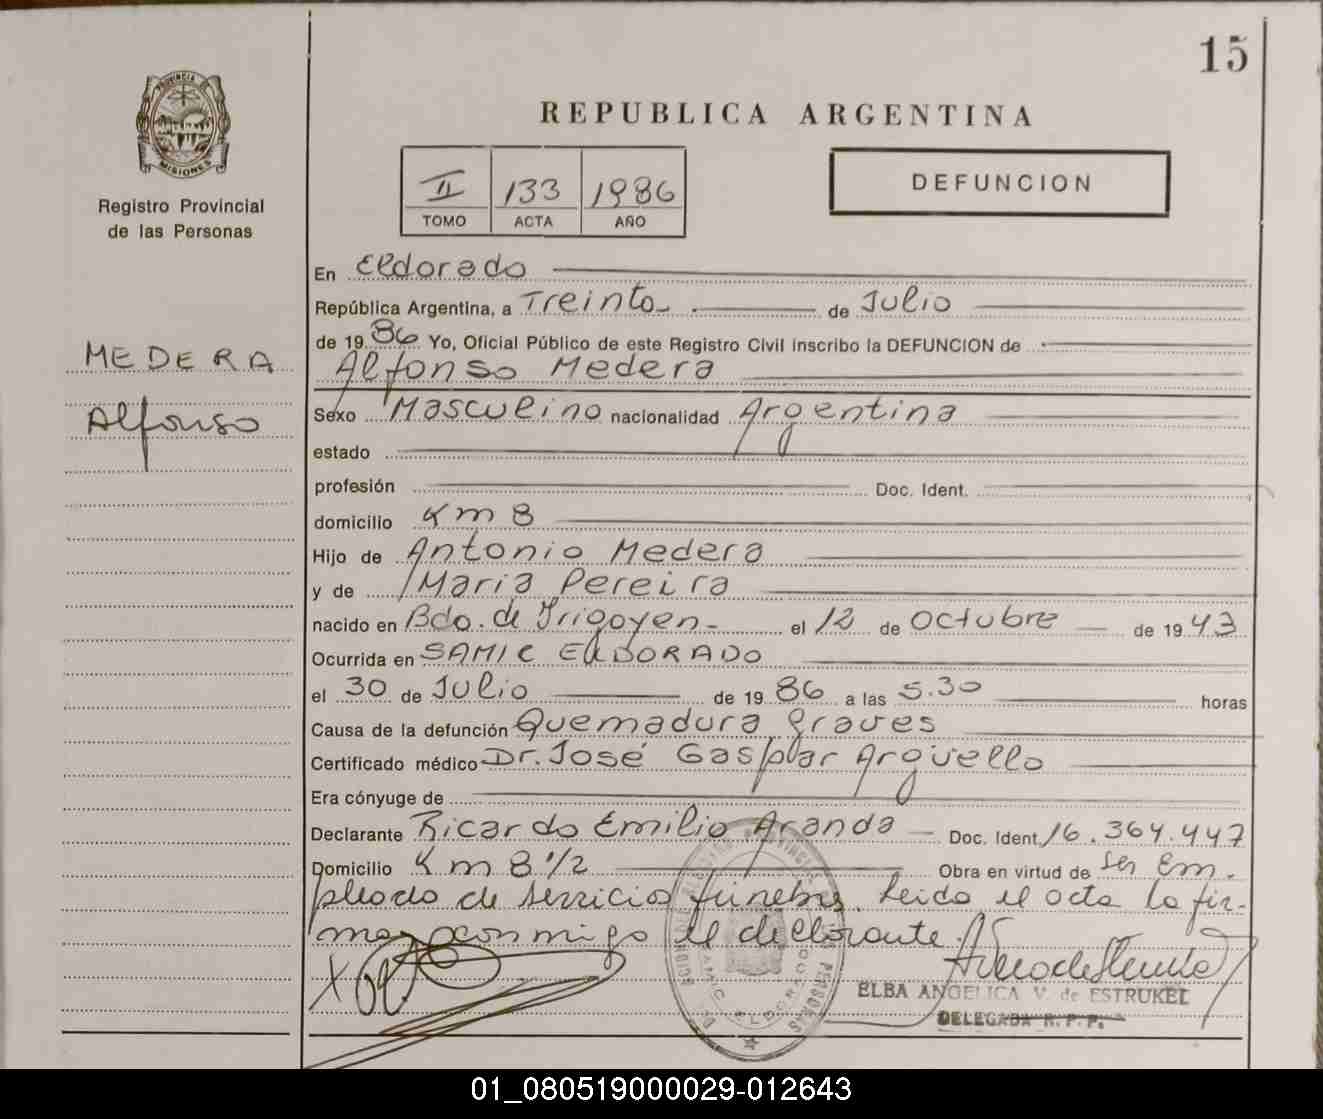 15
PROVINCIA DE
MISIONES
Registro Provincial
de las Personas
MEDERA
Alfonso
REPUBLICA ARGENTINA
II 133 1986
TOMO ACTA AÑO
DEFUNCION
En Eldorado
República Argentina, a Treinta de Julio
de 19 86 Yo, Oficial Público de este Registro Civil inscribo la DEFUNCION de
Alfonso Medera
Sexo Masculino nacionalidad Argentina
estado
profesión Doc. Ident.
domicilio Km 8
Hijo de Antonio Medera
y de Maria Pereira
nacido en Bdo. de Irigoyen - el 12 de Octubre de 19 43
Ocurrida en SAMIC ELDORADO
el 30 de Julio de 19 86 a las 5.30 horas
Causa de la defunción Quemadura graves
Certificado médico Dr. José Gaspar Argüello
Era cónyuge de
Declarante Ricardo Emilio Aranda Doc. Ident. 16.364.447
Domicilio Km 8 1/2 Obra en virtud de ser em-
pleado de servicios fúnebre. Leido el acta la fir-
ma conmigo el declarante.
X
ELBA ANGELICA V. de ESTRUKEL
DELEGADA R. P. P.
SAMIC ELDORADO
01_080519000029-012643